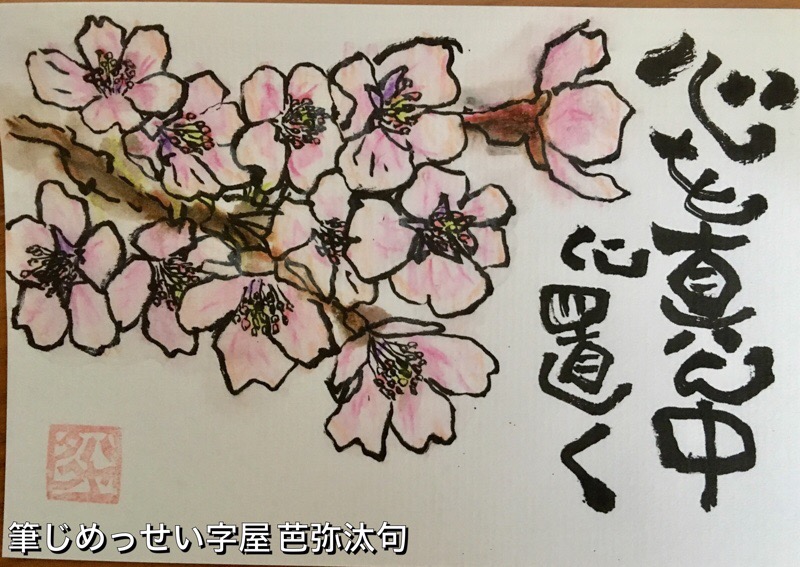 心を真ん中
に置く
筆じめっせい字屋 芭弥汰句